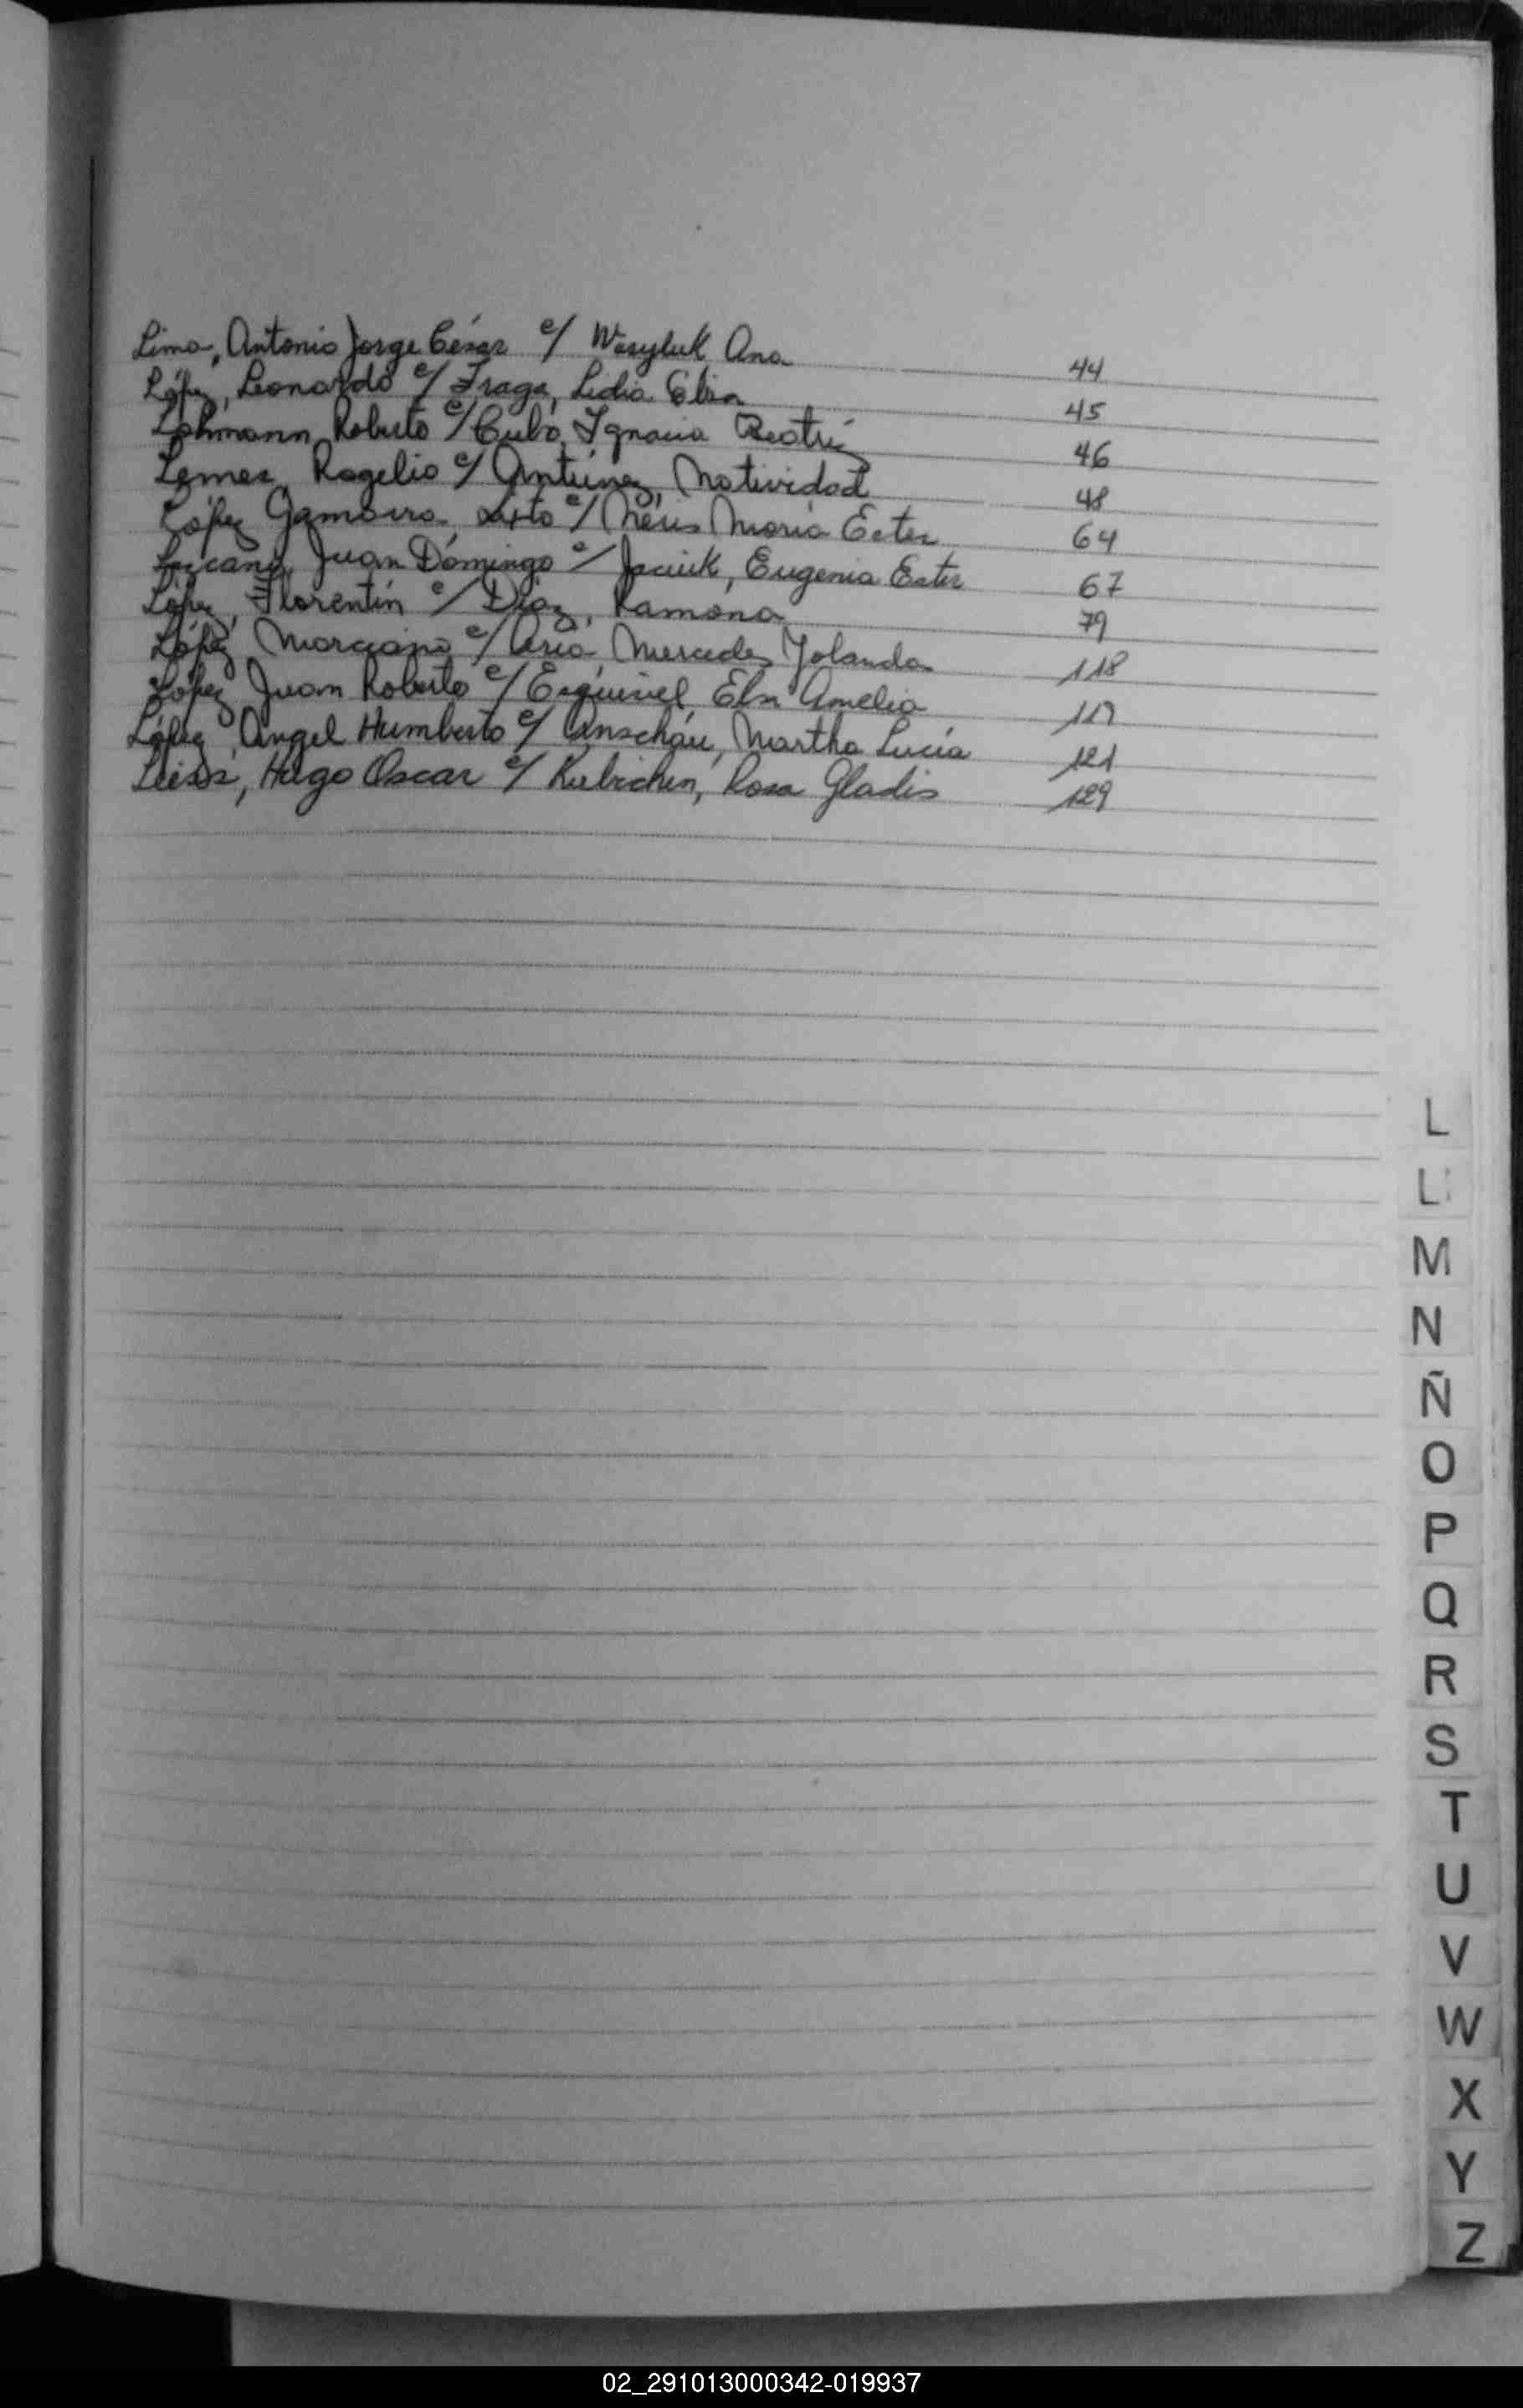 Lima, Antonio Jorge César c/ Wasyluk Ana 44
López, Leonardo c/ Fraga, Lidia Elsa 45
Lohmann, Roberto c/ Cubo, Ignacia Beatriz 46
Lemes, Rogelio c/ Antúnez, Natividad 48
López Gamarra, Sixto c/ María Ester 64
Juan Domingo c/ Eugenia Ester 67
López, Florentín c/ Díaz, Ramona 79
López Marciano c/ Mercedes Yolanda 118
López Juan Roberto c/ Esquivel Elsa Amelia 119
López, Angel Humberto c/ Anschau, Martha Lucía 121
Hugo Oscar c/ Rosa Gladis 129
L
LL
M
N
Ñ
O
P
Q
R
S
T
U
V
W
X
Y
Z
02_291013000342-019937